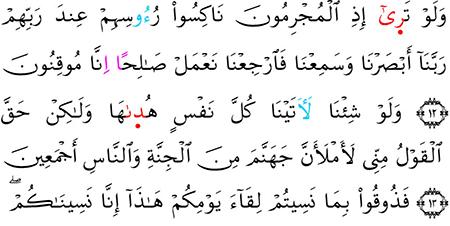 وَلَوۡ تَرَىٰٓ إِذِ ٱلۡمُجۡرِمُونَ نَاكِسُواْ رُءُوسِهِمۡ عِندَ رَبِّهِمۡ
رَبَّنَآ أَبۡصَرۡنَا وَسَمِعۡنَا فَٱرۡجِعۡنَا نَعۡمَلۡ صَٰلِحًا إِنَّا مُوقِنُونَ
١٢ وَلَوۡ شِئۡنَا لَأٓتَيۡنَا كُلَّ نَفۡسٍ هُدَىٰهَا وَلَٰكِنۡ حَقَّ
ٱلۡقَوۡلُ مِنِّي لَأَمۡلَأَنَّ جَهَنَّمَ مِنَ ٱلۡجِنَّةِ وَٱلنَّاسِ أَجۡمَعِينَ
١٣ فَذُوقُواْ بِمَا نَسِيتُمۡ لِقَآءَ يَوۡمِكُمۡ هَٰذَآ إِنَّا نَسِينَٰكُمۡۖ